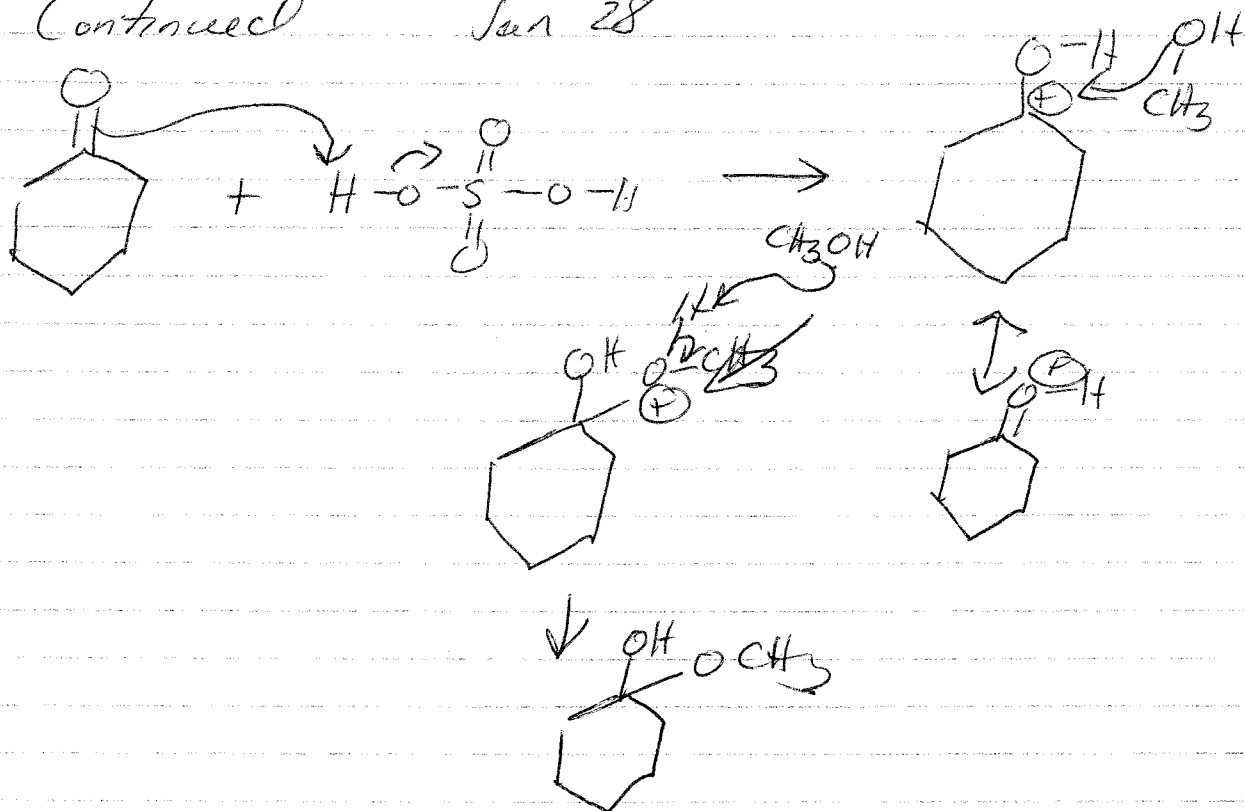 Continued Jan 28
O
O-H OH
⊕ CH3
O
+ H-O-S-O-H
O
CH3OH
H
OH O-CH3
⊕
⊕
O-H
OH OCH3